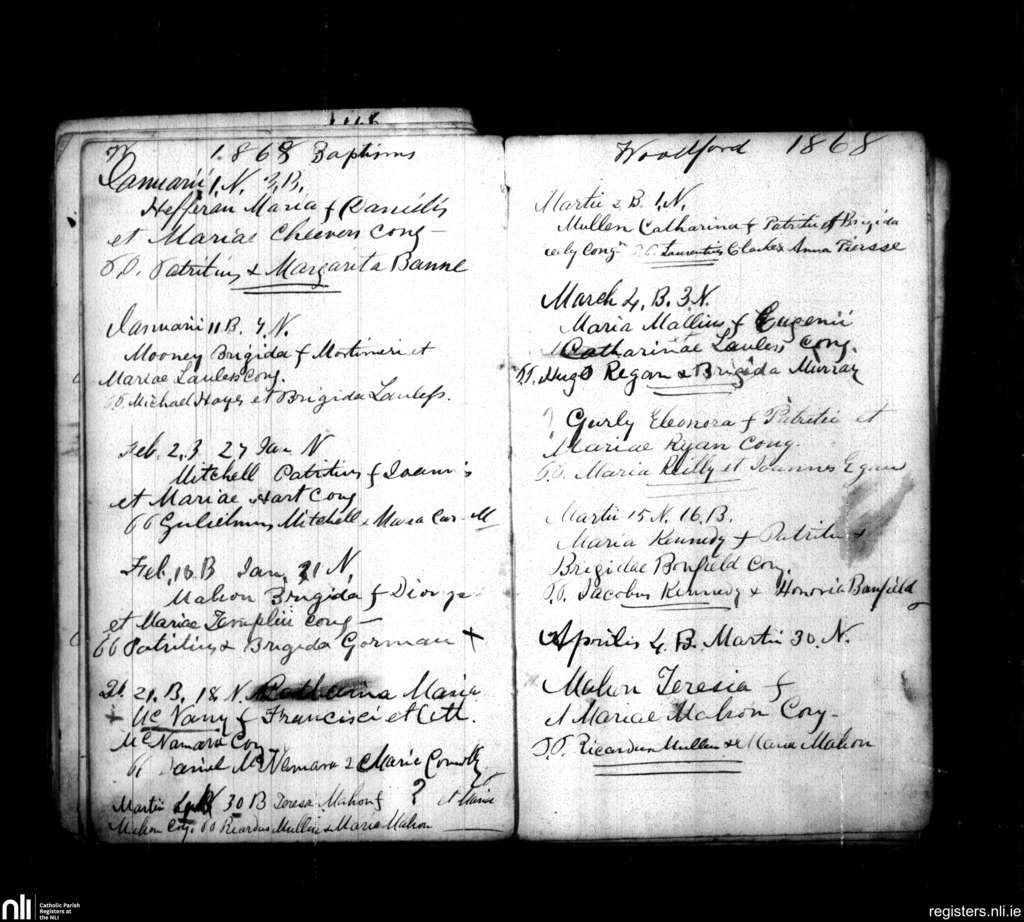 1868 Baptisms
Januarii 1. N. 2. B.
Hefferan Maria f Danielis
et Mariae Cheevers Cong
P.P. Patritius & Margarita Banne
Januarii 11 B. 7. N.
Mooney Brigida f Mortimeri et
Mariae Lawless Cong.
P.P. Michael Hayes et Brigida Lawless.
Feb. 2, 3 27 Jan N
Mitchell Patritius f Joannis
et Mariae Hart Cong
PP Gulielmus Mitchell & Maria
Feb. 10 B Jan. 31 N
Mahon Brigida f
et Mariae Cong
PP Patritius & Brigida Gorman
21. B. 18 N. Catharina Maria
McNamy f Francisci et Cath.
McNamara Con
PP Daniel McNamara & Maria
Martii 30 B Teresa Mahon f ? et Mariae
Mahon Cong. PP Ricardus Mullin & Maria Mahon
Woodford 1868
Martii 2 B. 1. N.
Mullen Catharina f Patritii & Brigida
Cong P.P. Laurentius Clarke & Anna Piersse
March 4. B. 3 N.
Maria Mallin f Eugenii
Catharinae Lawless Cong.
P.P. Hugo Regan & Brigida Murray
? Gurly Eleonora f Patritii et
Mariae Ryan Cong.
P.P. Maria Reilly et Joannes Egan
Martii 15 N. 16. B.
Maria Kennedy f Patritii &
Brigidae Bonfield Con.
P.P. Jacobus Kennedy & Honoria Banfield
Aprilis 4. B. Martii 30. N.
Mahon Teresia f
et Mariae Mahon Cong
P.P. Ricardus Mullen & Maria Mahon
nli
Catholic Parish
Registers at
the NLI
registers.nli.ie